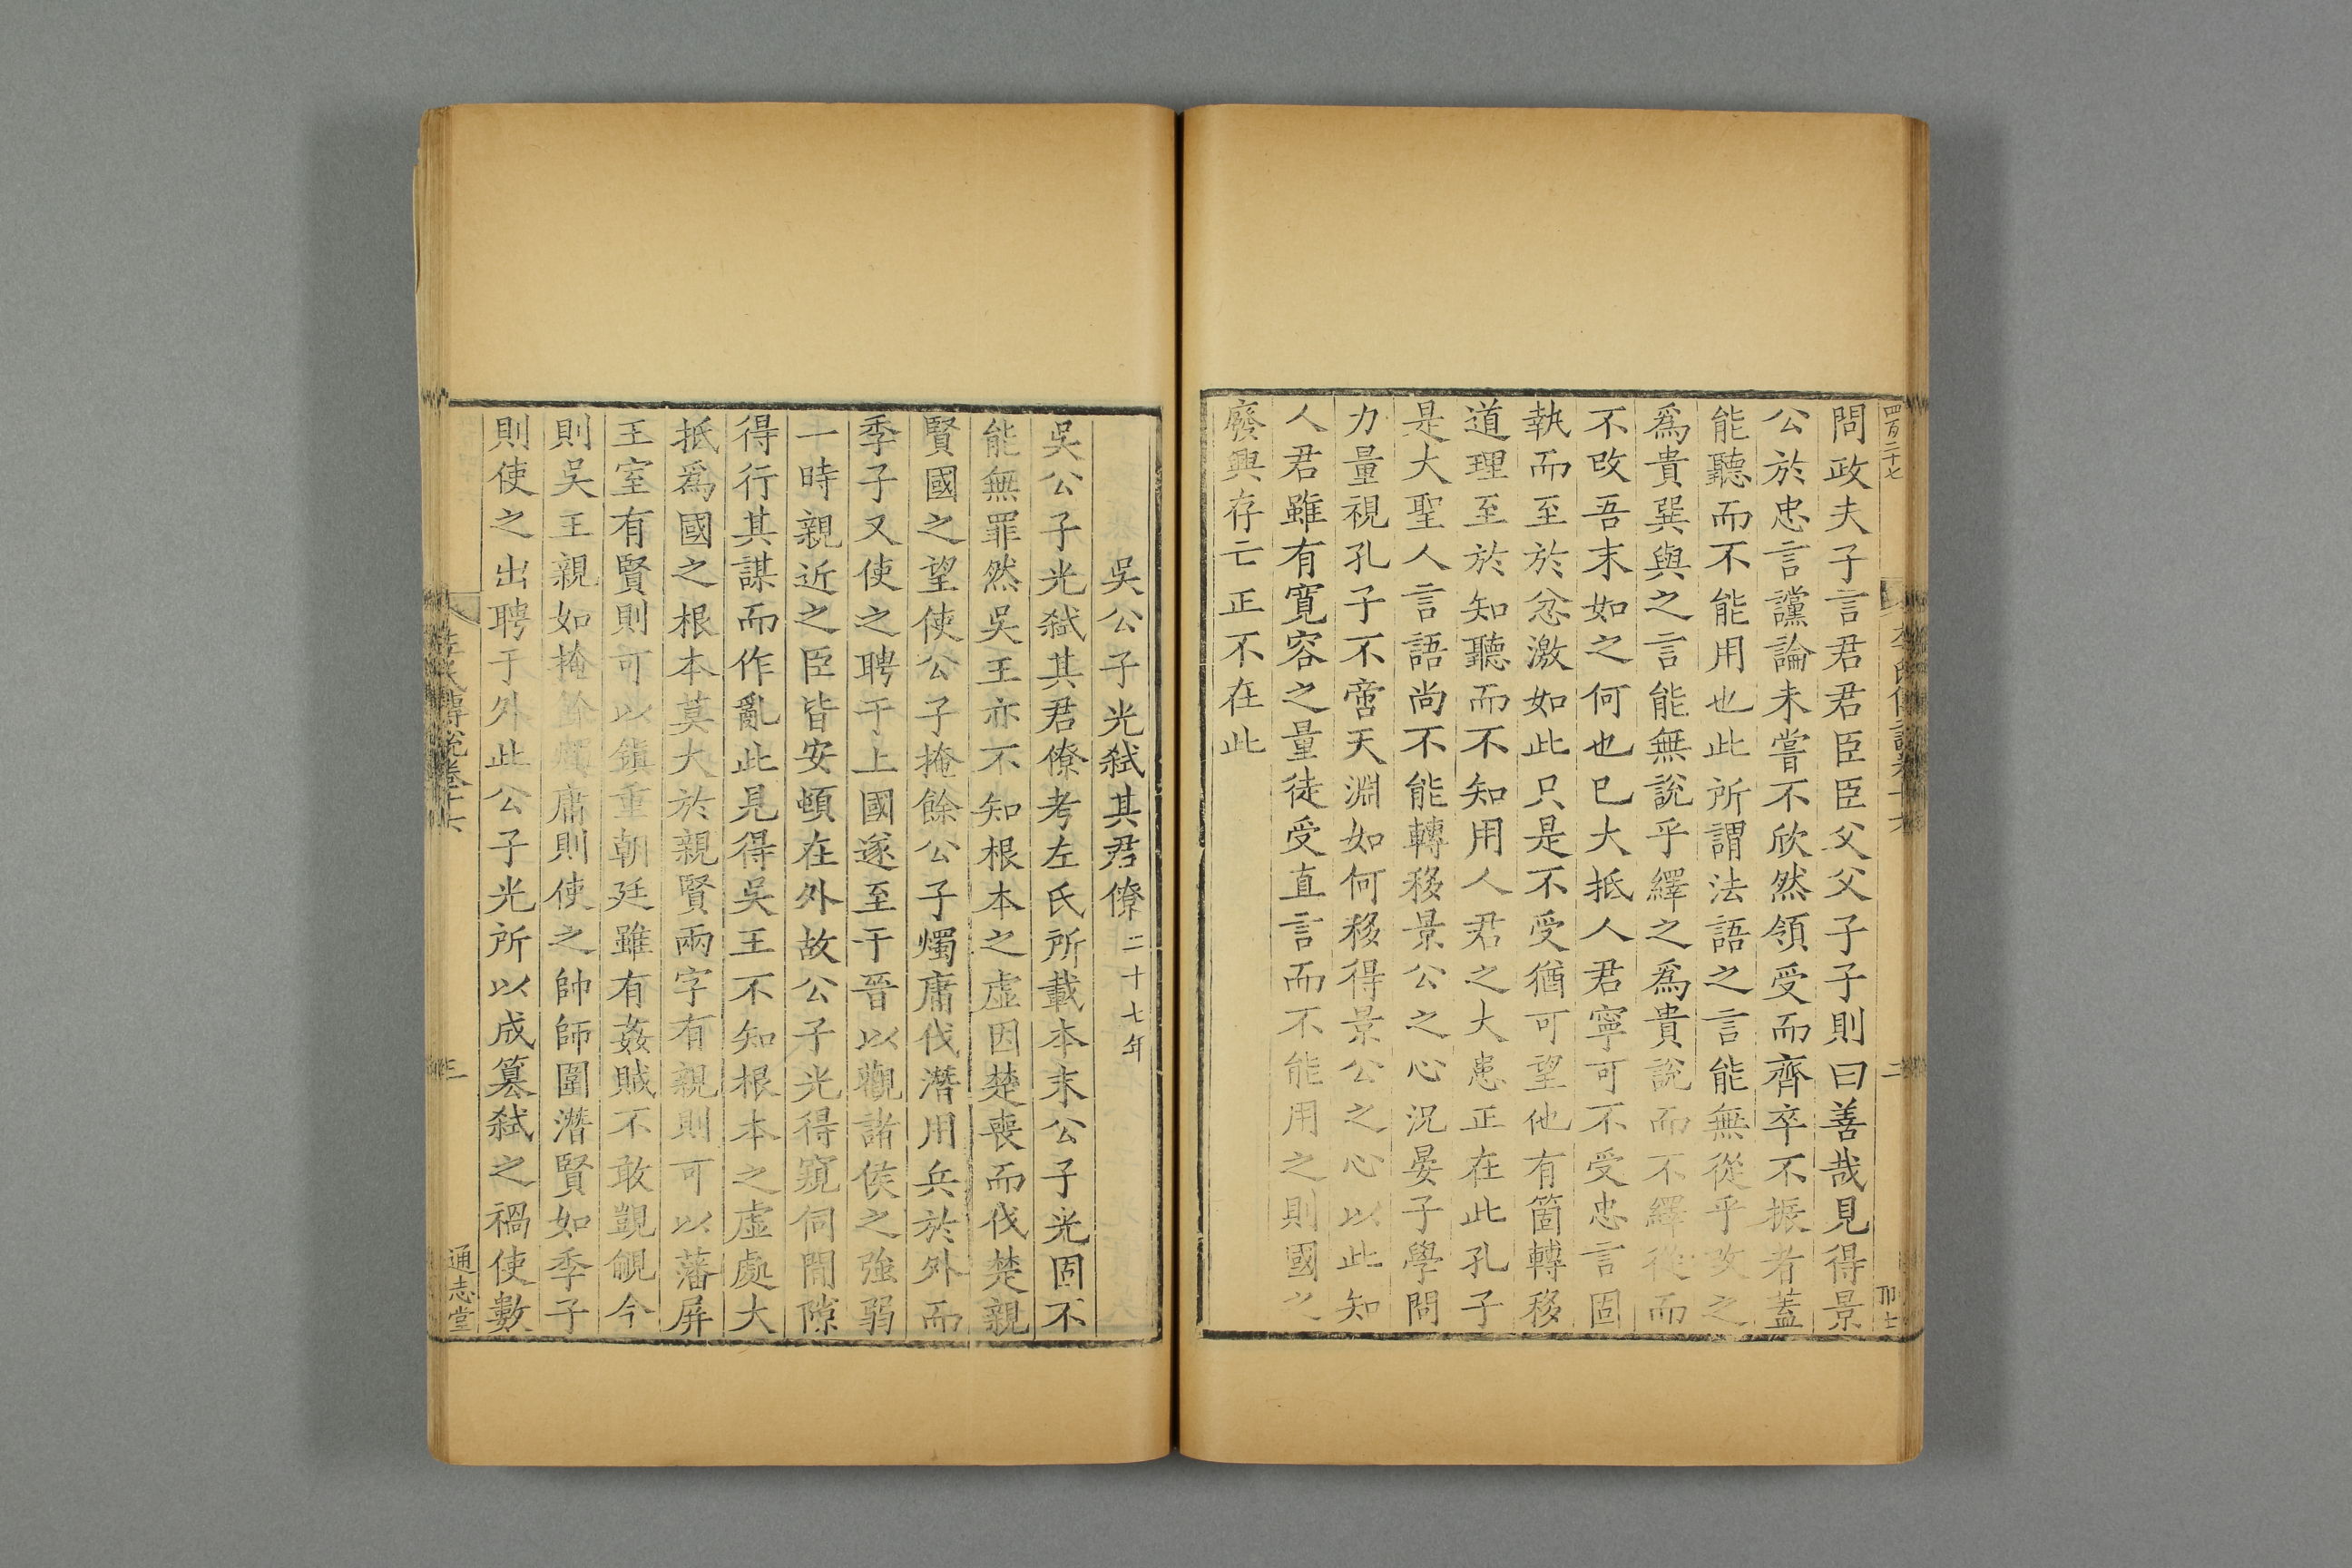 四百二十七
問政夫子言君君臣臣父父子子則曰善哉見得景
公於忠言讜論未嘗不欣然領受而齊卒不振者蓋
能聽而不能用也此所謂法語之言能無從乎改之
爲貴巽與之言能無說乎繹之爲貴說而不繹從而
不改吾末如之何也已大抵人君寧可不受忠言固
執而至於忿激如此只是不受猶可望他有箇轉移
道理至於知聽而不知用人君之大患正在此孔子
是大聖人言語尚不能轉移景公之心況晏子學問
力量視孔子不啻天淵如何移得景公之心以此知
人君雖有寬容之量徒受直言而不能用之則國之
廢興存亡正不在此
吳公子光弑其君僚二十七年
吳公子光弑其君僚考左氏所載本末公子光固不
能無罪然吳王亦不知根本之虛因楚喪而伐楚親
賢國之望使公子掩餘公子燭庸伐潛用兵於外而
季子又使之聘于上國遂至于晉以觀諸侯之強弱
一時親近之臣皆安頓在外故公子光得窺伺閒隙
得行其謀而作亂此見得吳王不知根本之虛處大
抵爲國之根本莫大於親賢兩字有親則可以藩屏
王室有賢則可以鎮重朝廷雖有姦賊不敢覬覦今
則吳王親如掩餘燭庸則使之帥師圍潛賢如季子
則使之出聘于外此公子光所以成篡弑之禍使數
通志堂